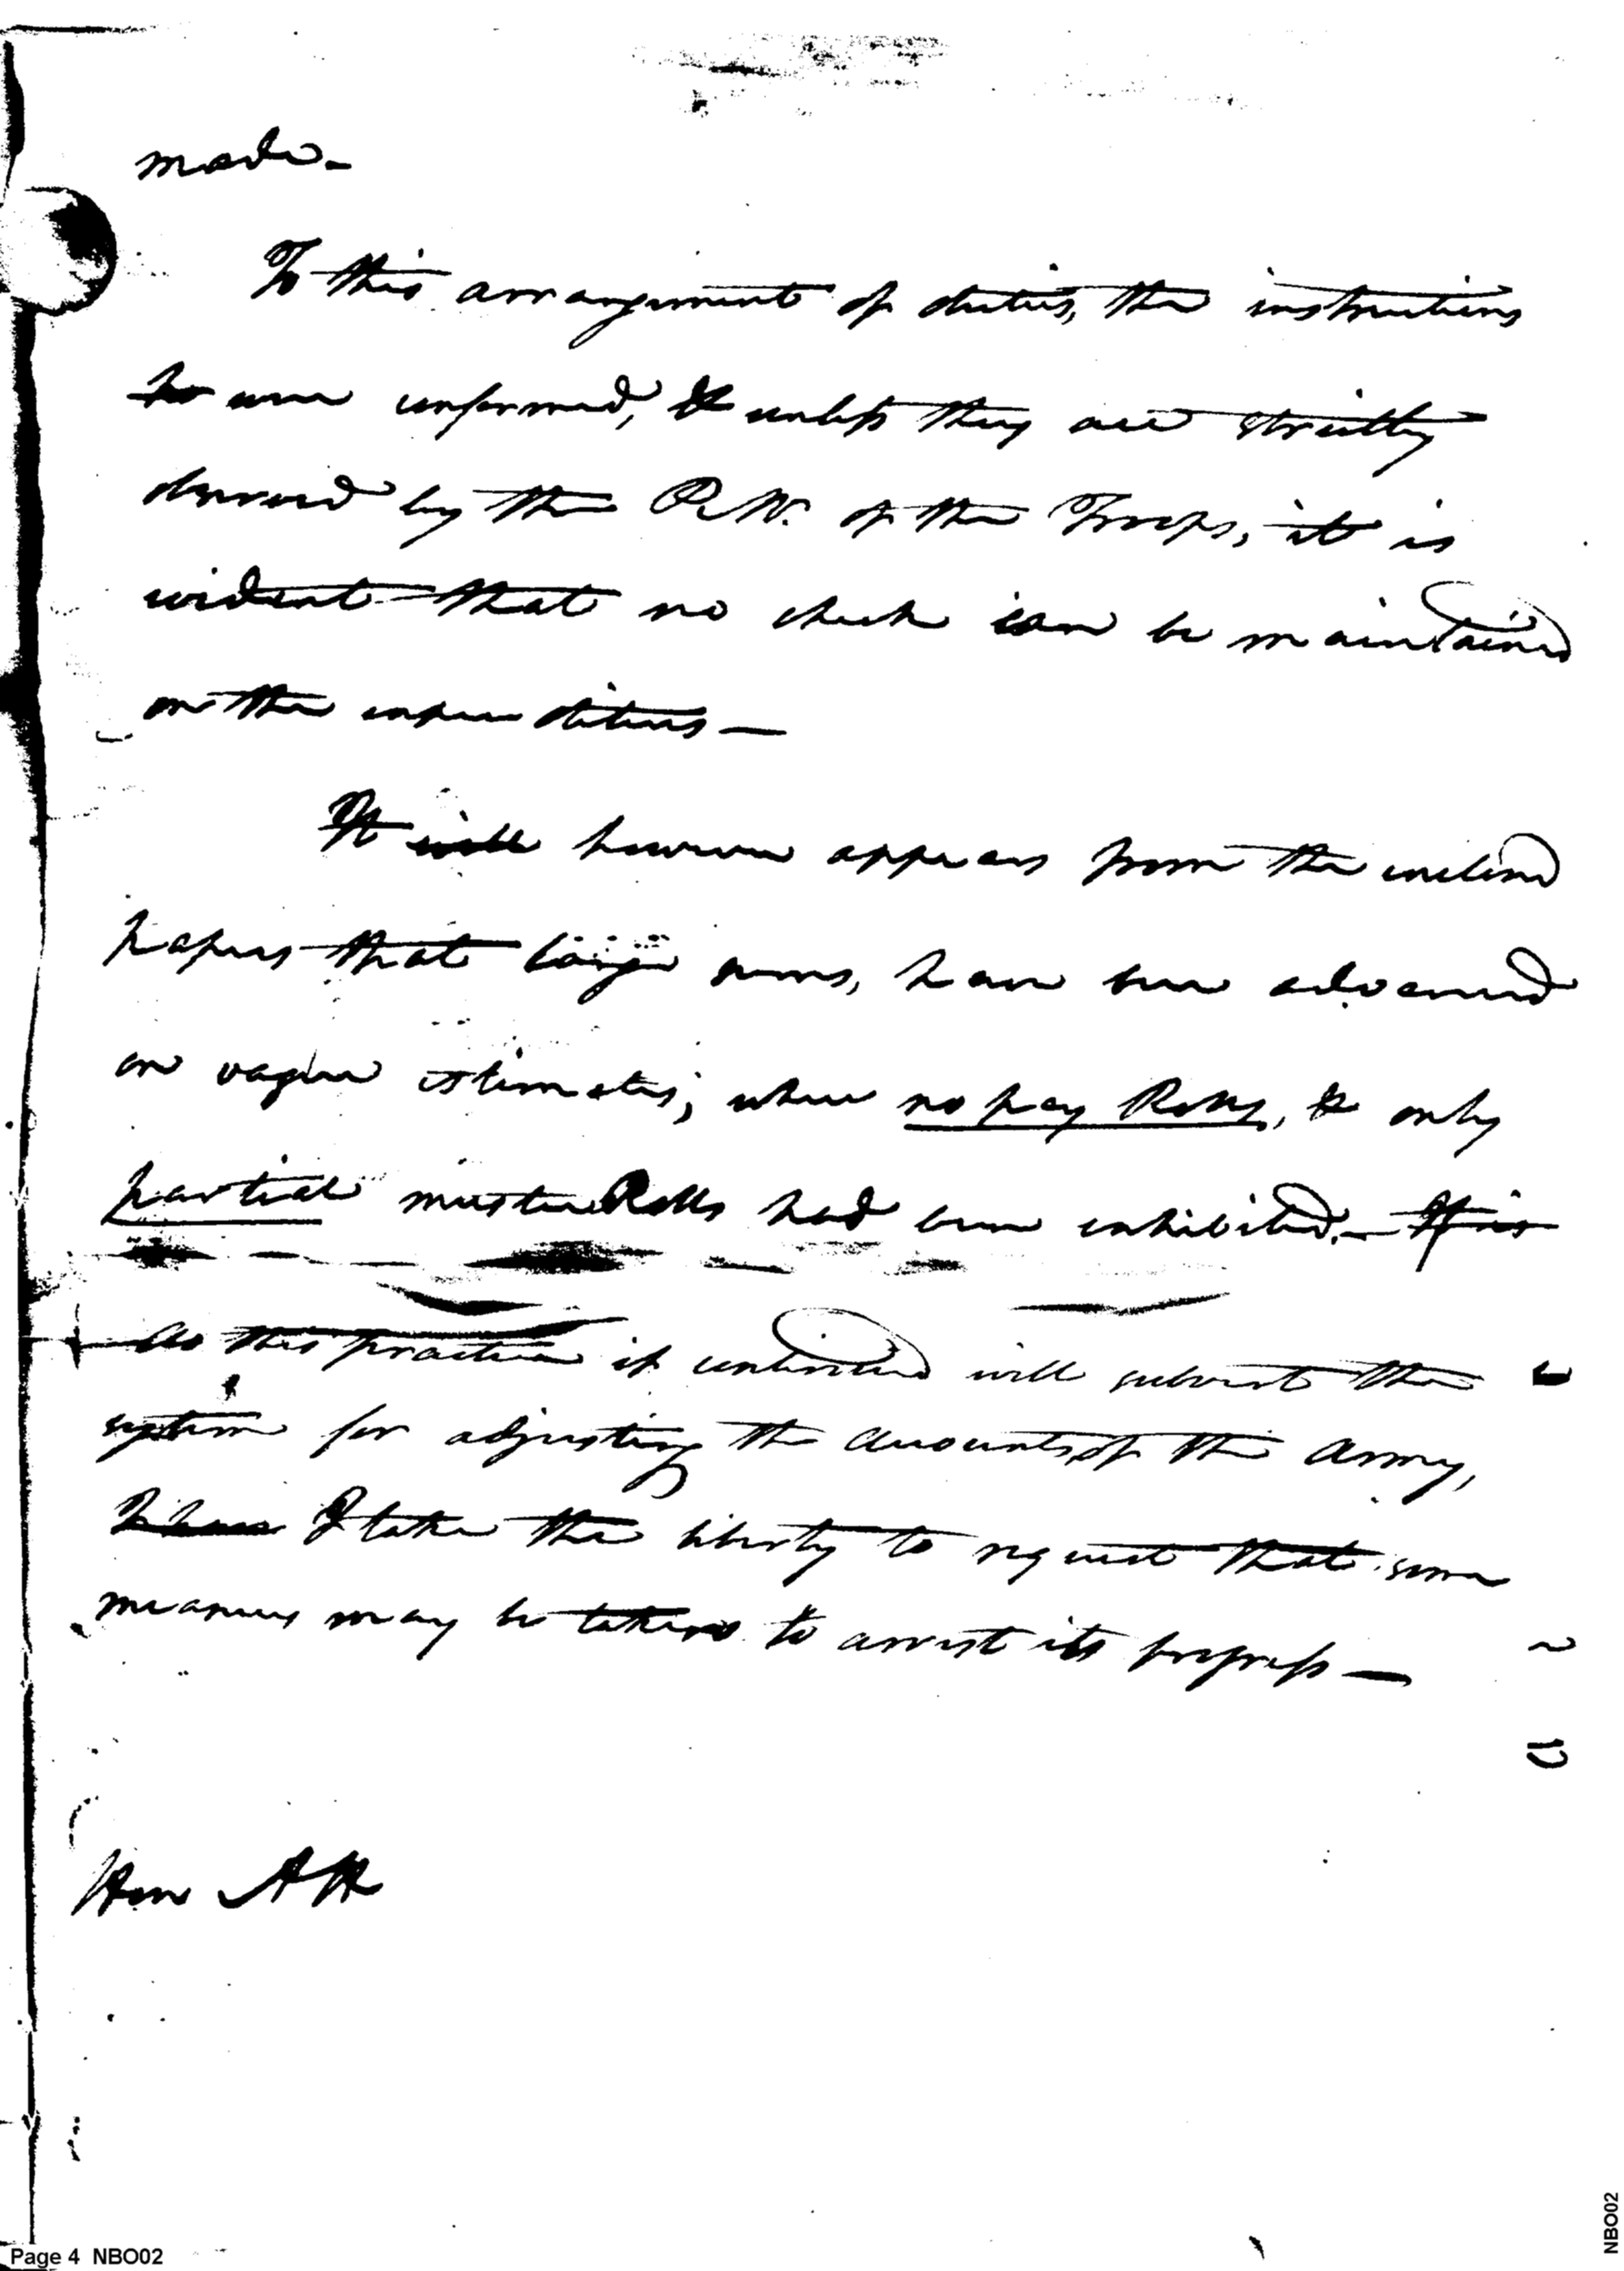 made –
To this arrangement of duties, the instructions
were conformed, & unless they are strictly
observed by the P.M. of the Troops, it is
evident that no check can be maintained
on the expenditures —
It will however appears from the inclosed
papers that large sums, have been advanced
on vague estimates, where no pay Rolls, & only
partial muster Rolls had been exhibited. – It is
As this practice if continued will subvert the
system for adjusting the accounts of the Army,
I have I take the liberty to request that some
measures may be taken to arrest its progress —
Hon A H
Page 4 NBO02
NBO02